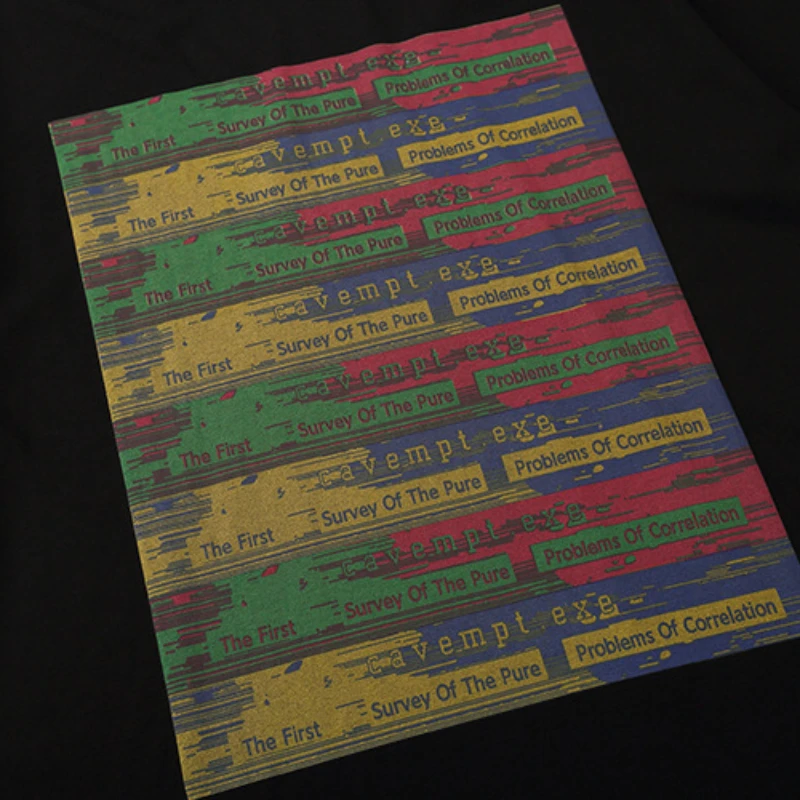 cavempt.exe-
The First Survey Of The Pure Problems Of Correlation
cavempt.exe-
The First Survey Of The Pure Problems Of Correlation
cavempt.exe-
The First Survey Of The Pure Problems Of Correlation
cavempt.exe-
The First Survey Of The Pure Problems Of Correlation
cavempt.exe-
The First Survey Of The Pure Problems Of Correlation
cavempt.exe-
The First Survey Of The Pure Problems Of Correlation
cavempt.exe-
The First Survey Of The Pure Problems Of Correlation
cavempt.exe-
The First Survey Of The Pure Problems Of Correlation